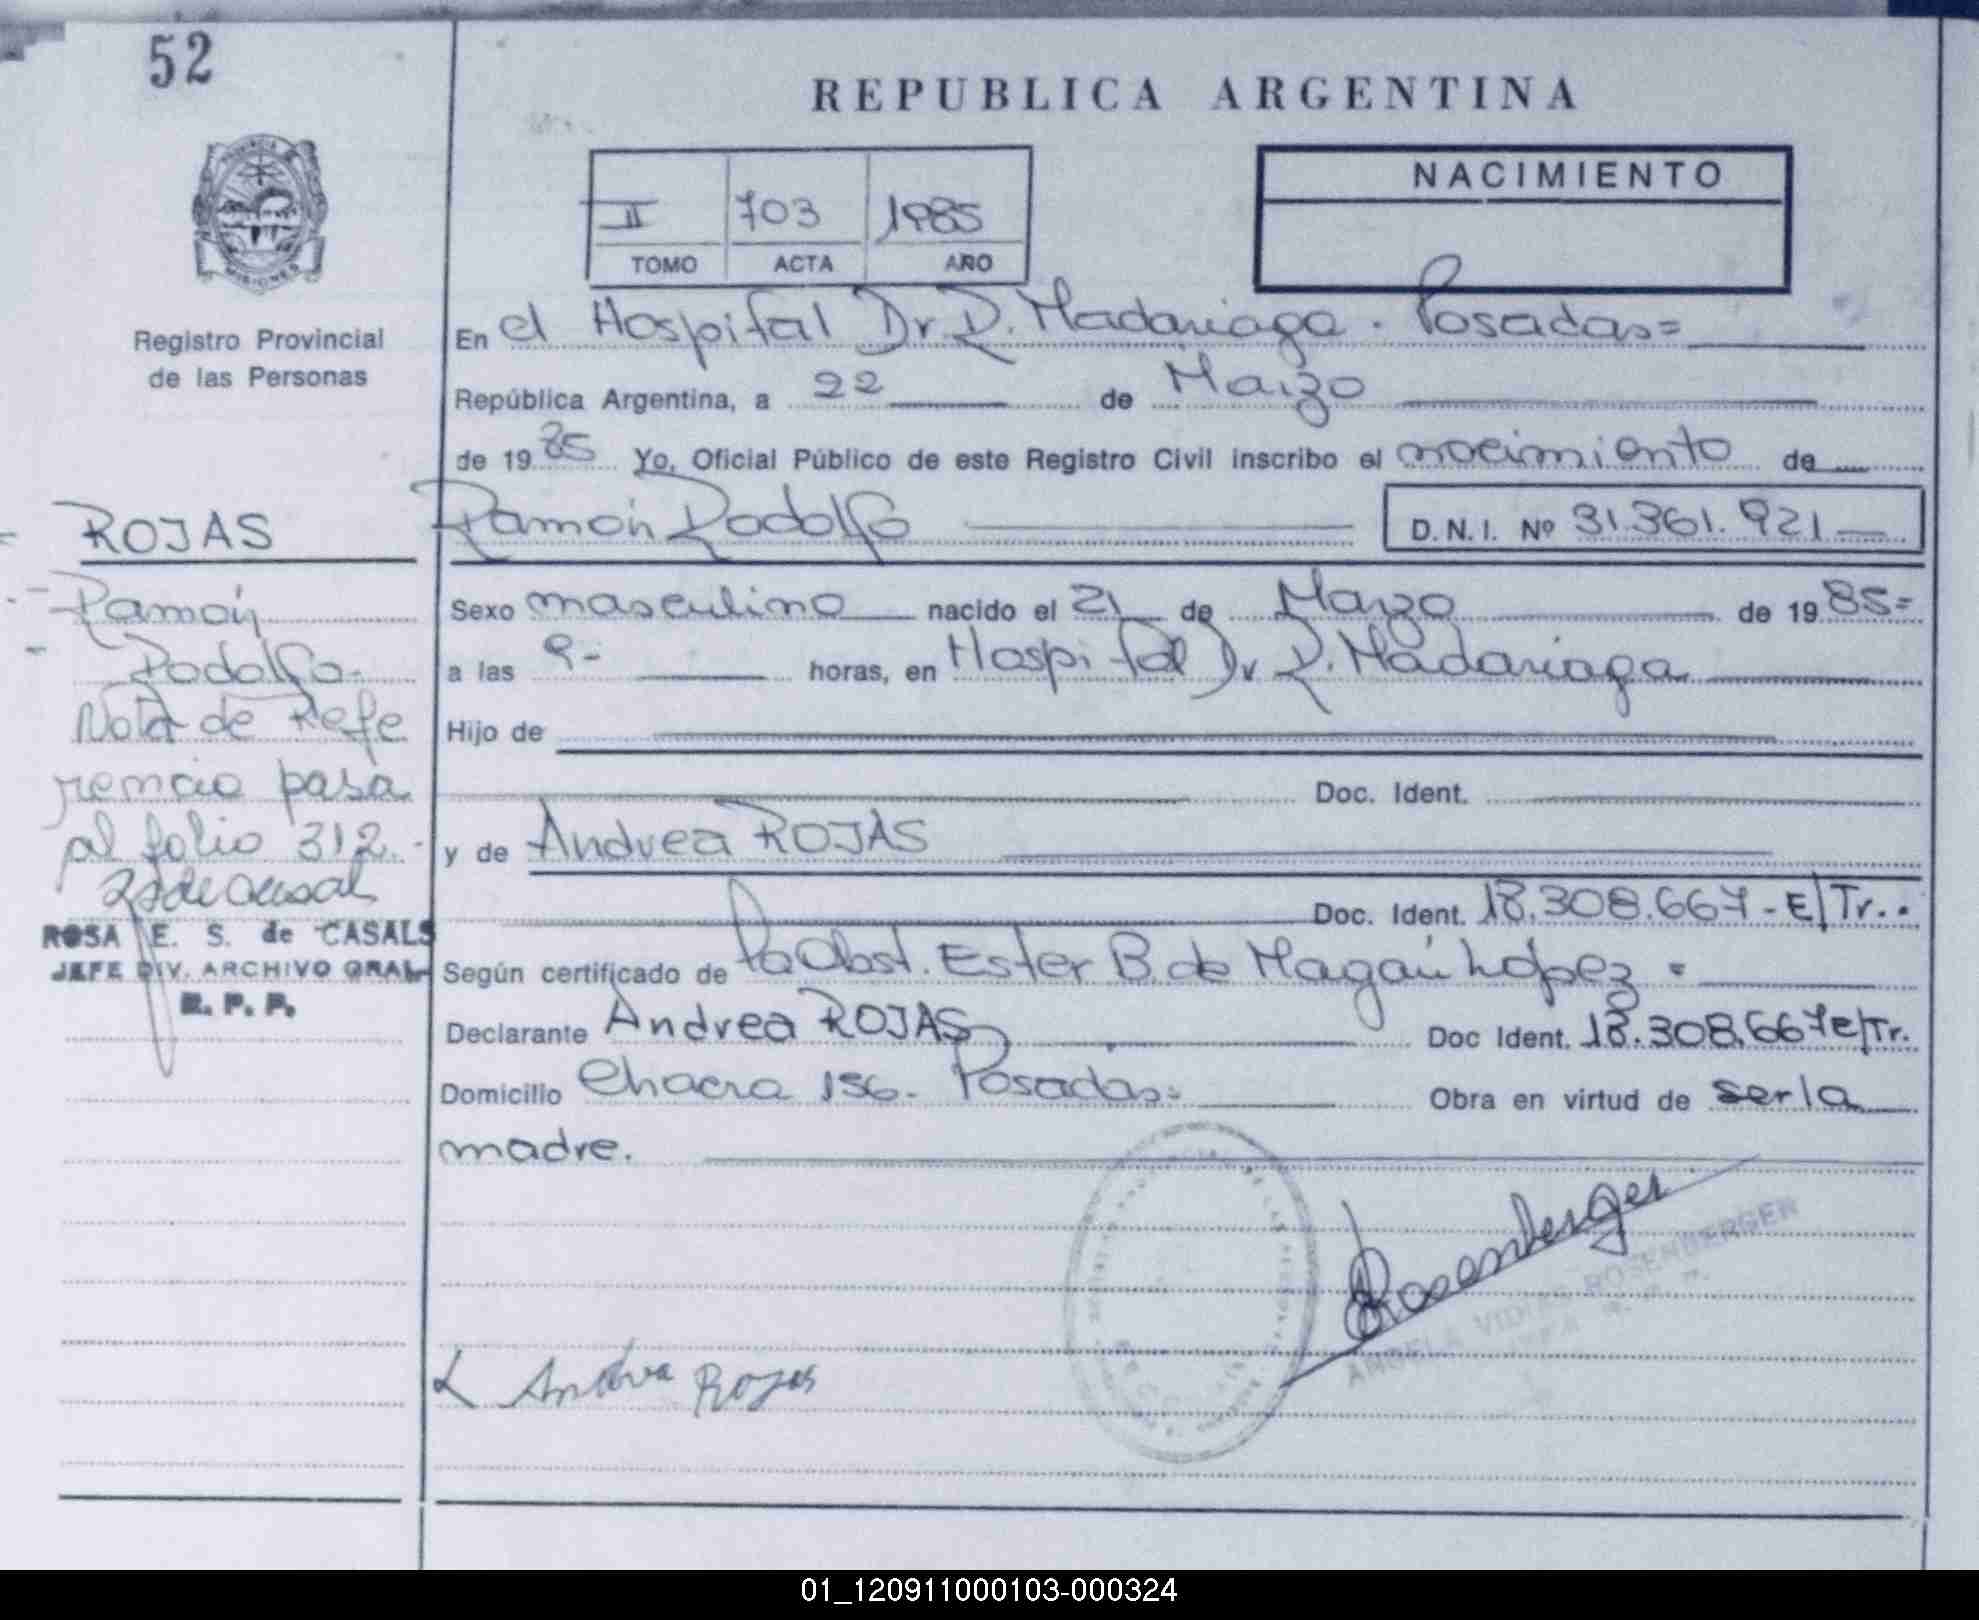 52
REPUBLICA ARGENTINA
NACIMIENTO
II 703 1985
TOMO ACTA AÑO
PROVINCIA
MISIONES
Registro Provincial
de las Personas
En el Hospital Dr R. Madariaga. Posadas=
República Argentina, a 22 de Marzo
de 1985 Yo, Oficial Público de este Registro Civil inscribo el nacimiento de
Ramón Rodolfo D.N.I. Nº 31.361.921
Sexo masculino nacido el 21 de Marzo de 1985=
a las 9- horas, en Hospital Dr R. Madariaga
Hijo de
Doc. Ident.
y de Andrea ROJAS
Doc. Ident. 18.308.667-E/Tr..
Según certificado de Obst. Ester B. de López =
Declarante Andrea ROJAS Doc Ident. 18.308.667E/Tr.
Domicilio Chacra 156. Posadas= Obra en virtud de ser la
madre.
ROJAS
Ramón
Rodolfo.
Nota de Refe
rencia pasa
al folio 312.-
ROSA E. S. de CASALS
JEFE DIV. ARCHIVO GRAL
R. P. P.
Rosenberger
ANGELA ROSENBERGER
Andrea Rojas
01_120911000103-000324